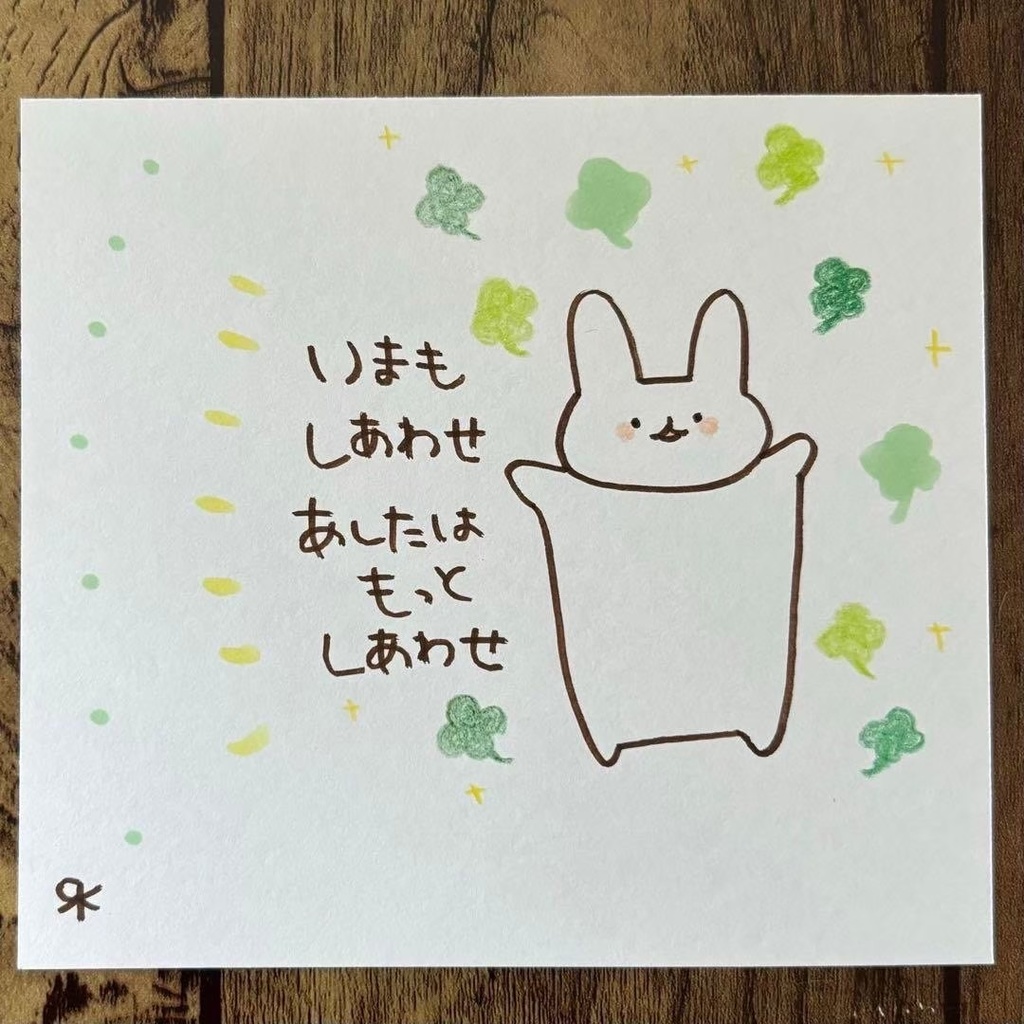 いまも
しあわせ
あしたは
もっと
しあわせ